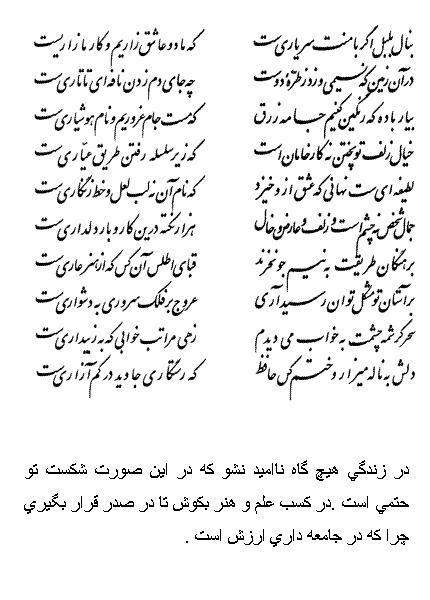 بنال بلبل اگر با منت سر یاری‌ست که ما دو عاشق زاریم و کار ما زاریست
در آن زمین که نسیمی وزد ز طرّهٔ دوست چه جای دم زدن نافه‌ای تاتاری‌ست
بیار باده که رنگین کنیم جامه زرق که مست جام غروریم و نام هوشیاری‌ست
خیال زلف تو پختن نه کار خامان است که زیر سلسله رفتن طریق عیّاری‌ست
لطیفه‌ای‌ست نهانی که عشق از و خیزد که نام آن نه لب لعل و خط زنگاری‌ست
جمال شخص نه چشم است و زلف و عارض و خال هزار نکته درین کار و بار دلداری‌ست
برهنگان طریقت به نیم جو نخرند قبای اطلس آن کس که از هنر عاری‌ست
بر آستان تو مشکل توان رسید آری عروج بر فلک سروری به دشواری‌ست
سحر کرشمه چشمت به خواب می دیدم زهی مراتب خوابی که به ز بیداری‌ست
دلش به ناله میازار و ختم کن حافظ که رستگاری جاوید در کم آزاری‌ست
در زندگي هيچ گاه نااميد نشو که در اين صورت شکست تو
حتمي است .در کسب علم و هنر بکوش تا در صدر قرار بگيري
چرا که در جامعه داري ارزش است .